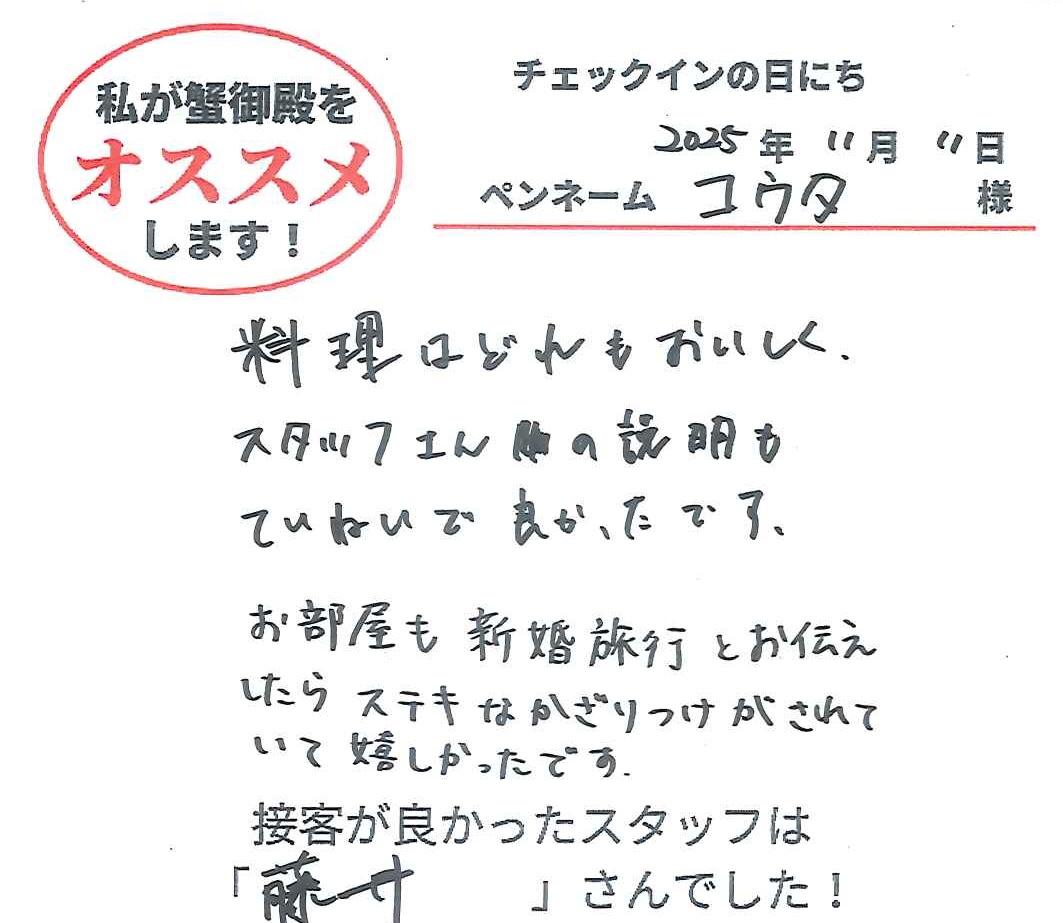 私が蟹御殿を
オススメ
します！
チェックインの日にち
2025年 11月 11日
ペンネーム コウタ 様
料理はどれもおいしく、
スタッフさんの説明も
ていねいで良かったです。
お部屋も新婚旅行とお伝え
したらステキなかざりつけがされて
いて嬉しかったです。
接客が良かったスタッフは
「藤井 」さんでした！